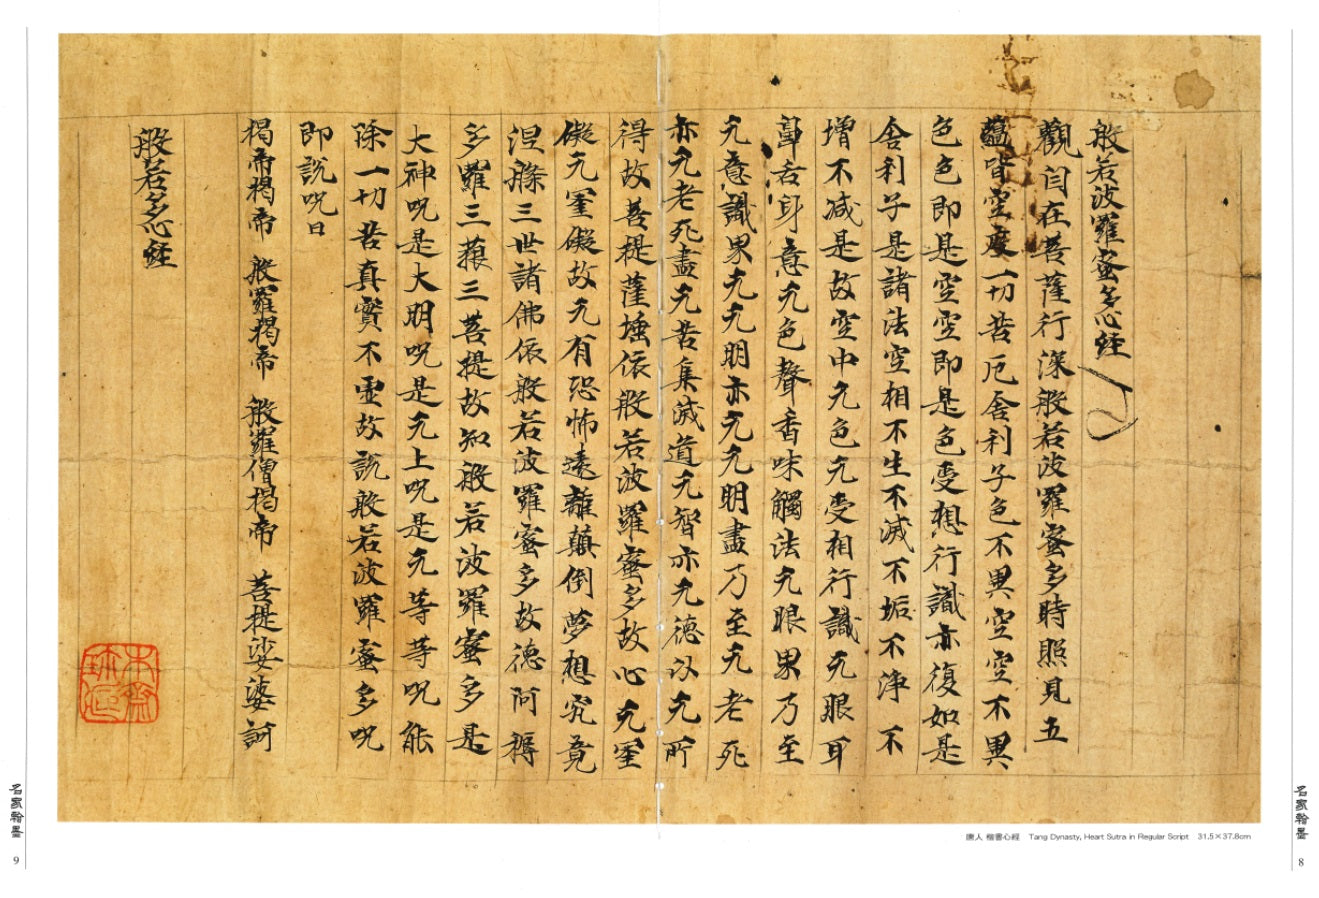 般若波羅蜜多心経
觀自在菩薩行深般若波羅蜜多時照見五
蘊皆空度一切苦厄舍利子色不異空空不異
色色即是空空即是色受想行識亦復如是
舍利子是諸法空相不生不滅不垢不淨不
增不減是故空中无色无受相行識无眼耳
鼻舌身意无色聲香味觸法无眼界乃至
无意識界无无明亦无无明盡乃至无老死
亦无老死盡无苦集滅道无智亦无德以无所
得故菩提薩埵依般若波羅蜜多故心无罣
礙无罣礙故无有恐怖遠離顛倒夢想究竟
涅槃三世諸佛依般若波羅蜜多故德阿耨
多羅三藐三菩提故知般若波羅蜜多是
大神呪是大明呪是无上呪是无等等呪能
除一切苦真實不虛故説般若波羅蜜多呪
即説呪曰
揭帝揭帝 般羅揭帝 般羅僧揭帝 菩提娑婆訶
般若多心経
唐人 楷書心經 Tang Dynasty, Heart Sutra in Regular Script 31.5×37.8cm
名家翰墨
8
名家翰墨
9